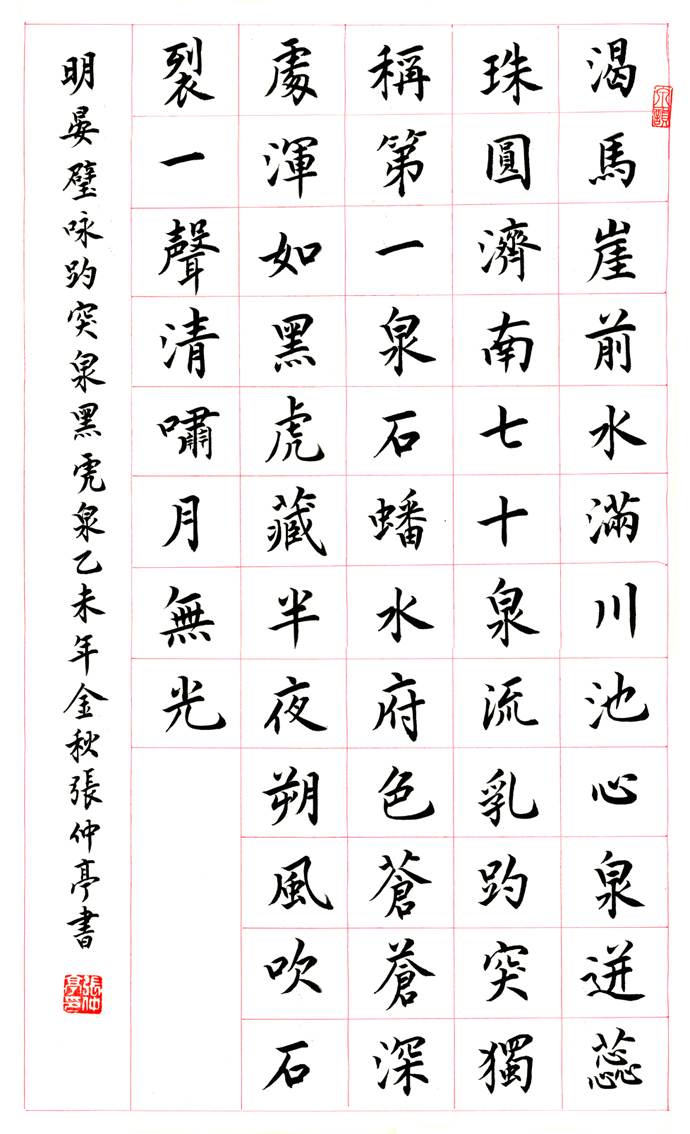 渴馬崖前水滿川池心泉迸蕊
珠圓濟南七十泉流乳趵突獨
稱第一泉石蟠水府色蒼蒼深
處渾如黑虎藏半夜朔風吹石
裂一聲清嘯月無光
明晏璧咏趵突泉黑虎泉乙未年金秋張仲亭書
張仲亭印